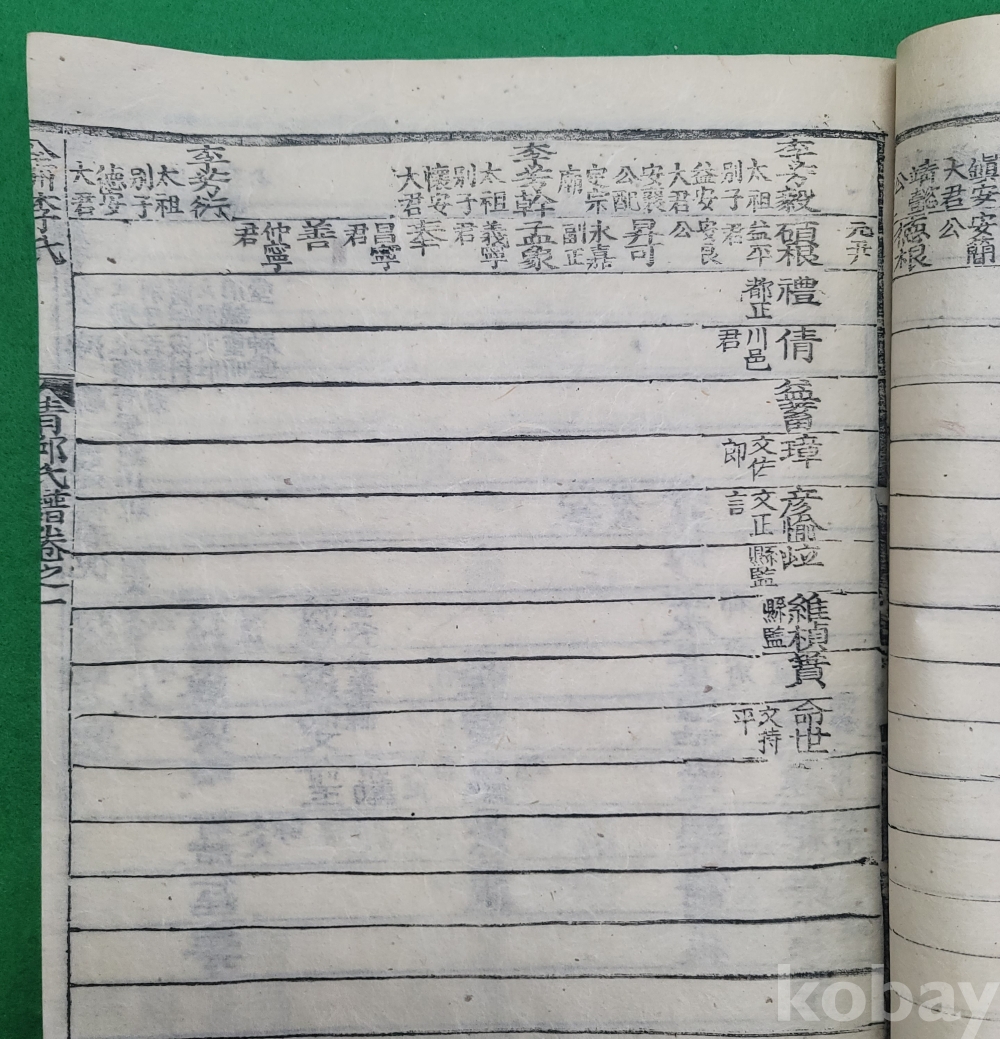 鎭安
大君
安簡
公
靖懿
公
德根
元尹
李芳毅
太祖
別子
益安
大君
安襄
公配
定宗
廟
碩根
益平
君
安良
公
昇可
永嘉
副正
禮
都正
倩
川邑
君
益蓄
璋
文佐
郎
彦愉
文正
言
縣監
維楨
縣監
賁
命世
文持
平
李芳幹
太祖
別子
懷安
大君
孟衆
義寧
君
泰
昌寧
君
善
仲寧
君
李芳衍
太祖
別子
德安
大君
全州李氏
青邱氏譜卷之一
kobay